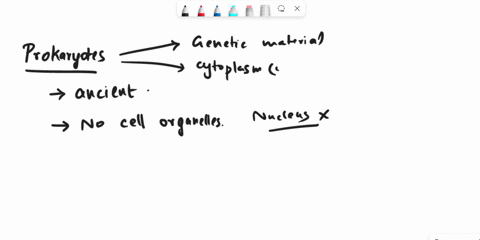 Prokaryotes → Genetic material
→ cytoplasm (
→ ancient .
→ No cell organelles. Nucleus x